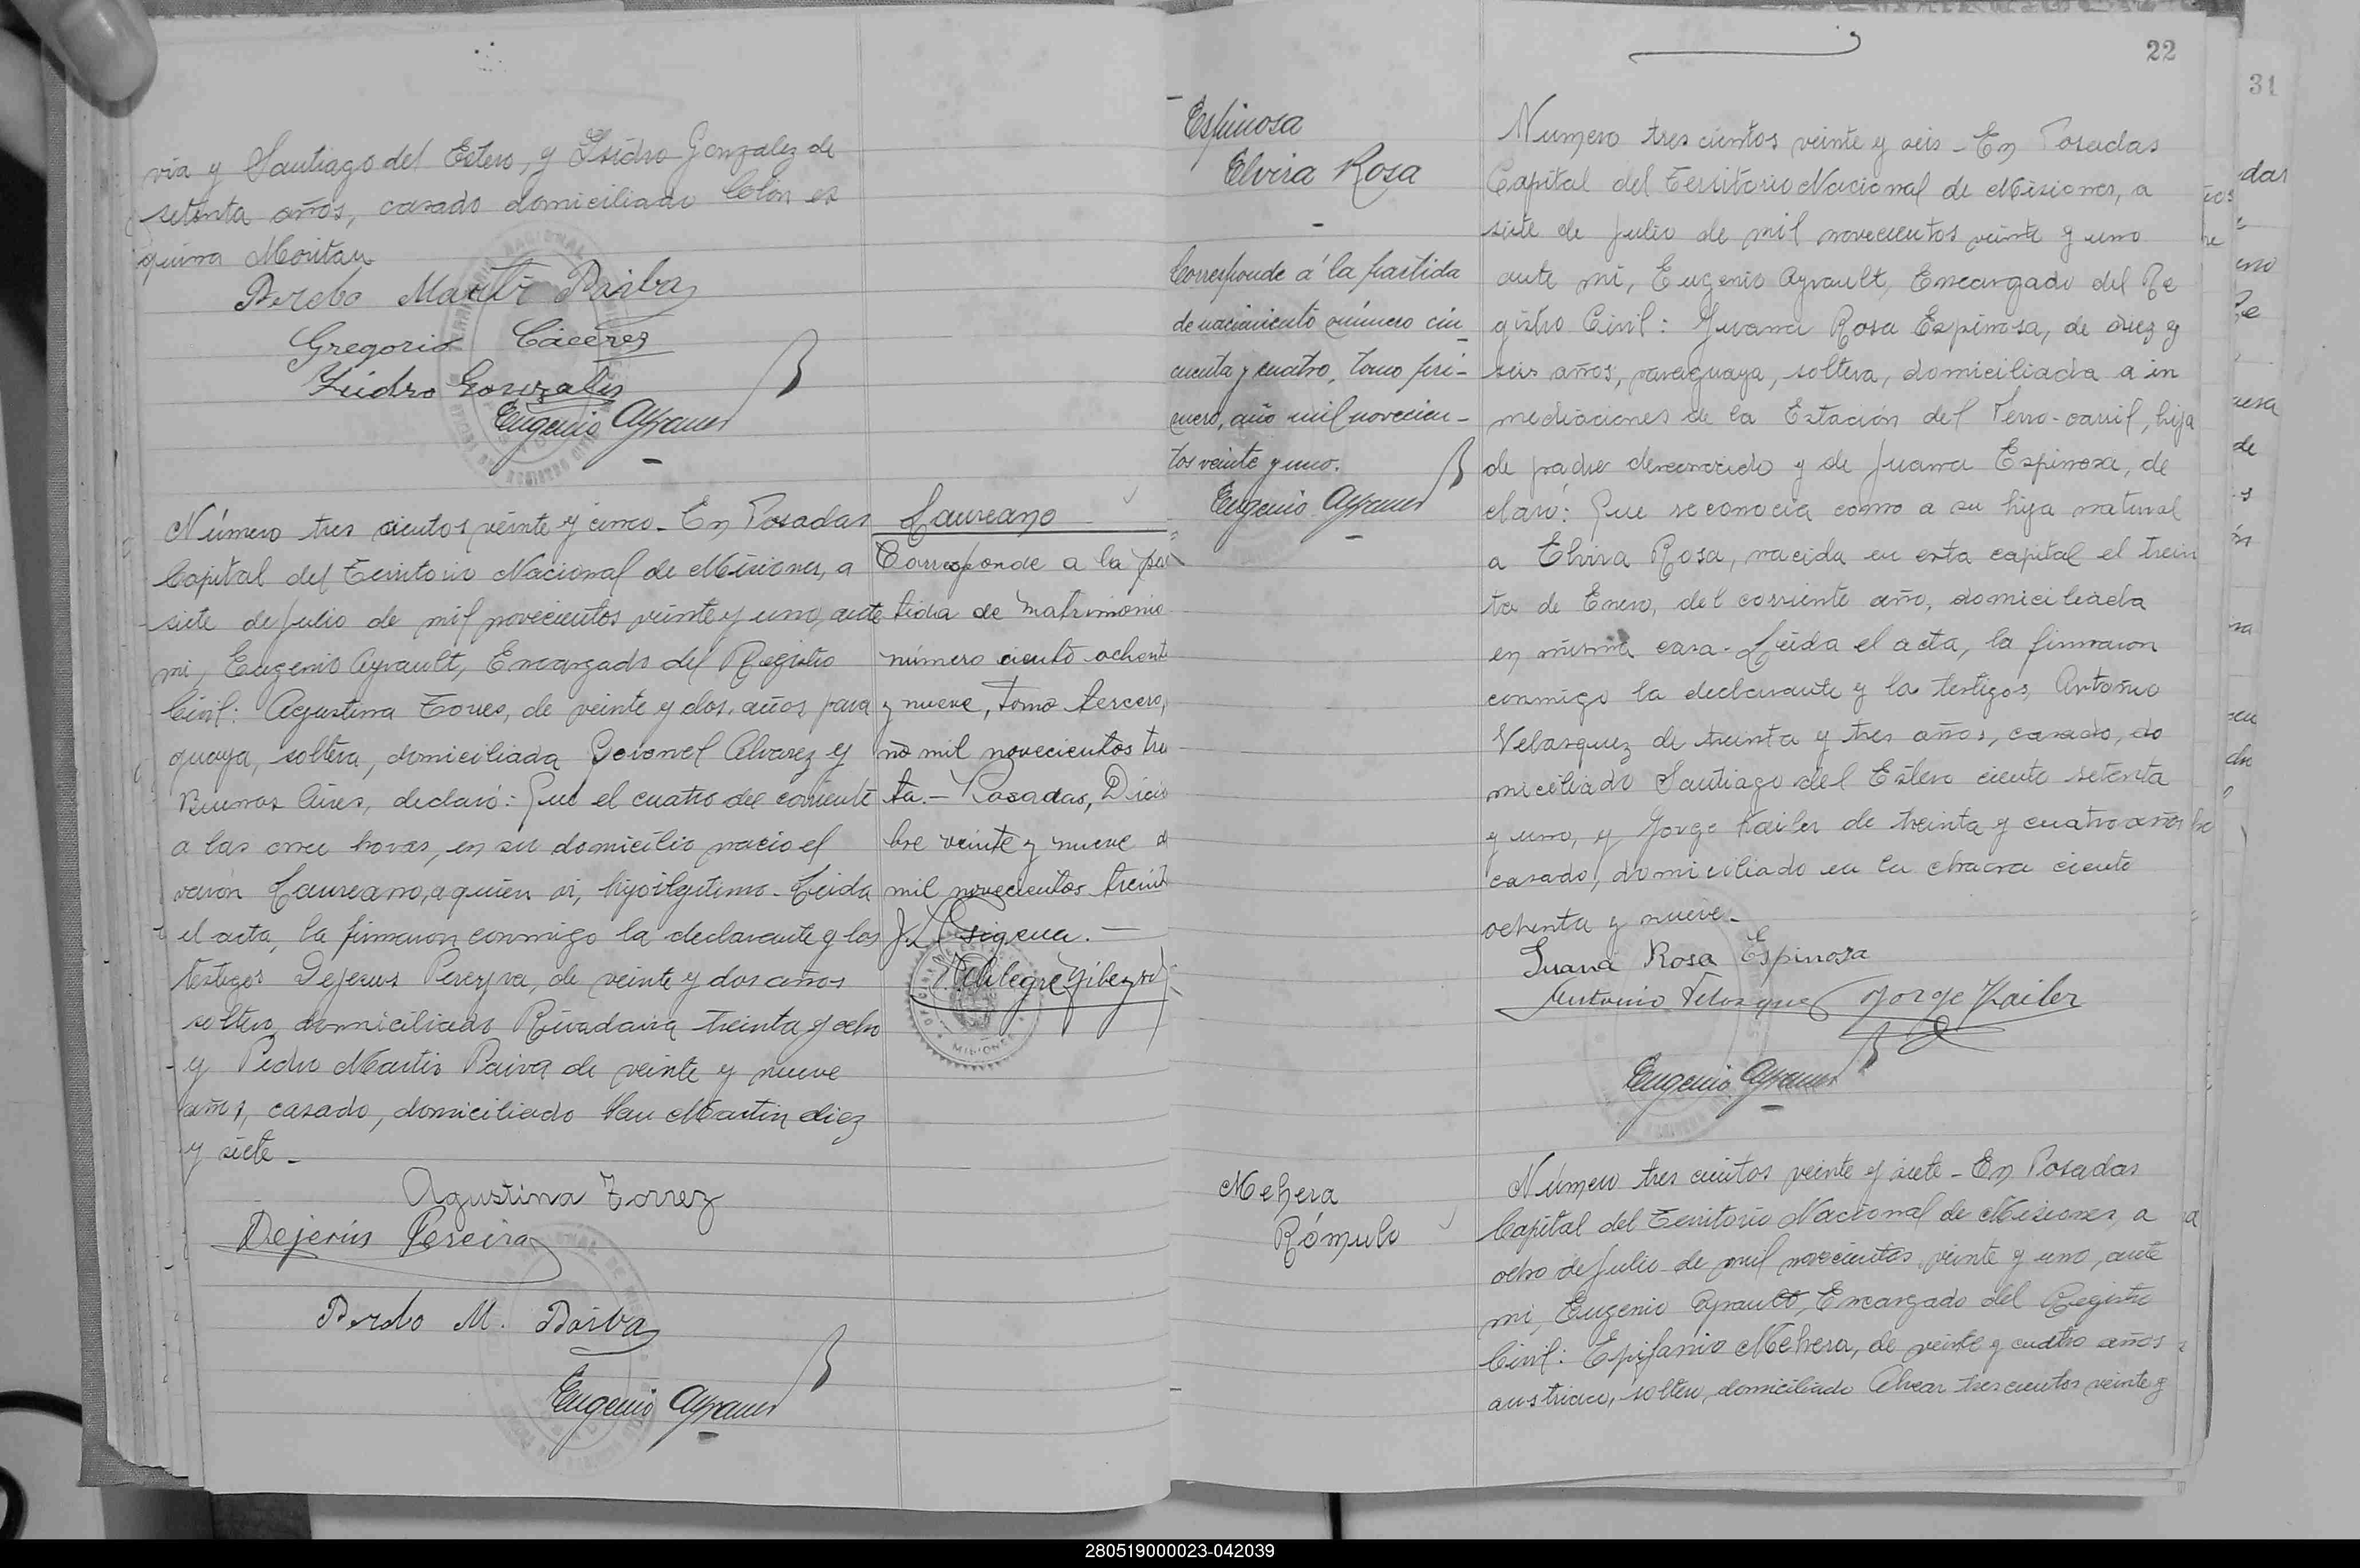 via y Santiago del Estero, y Isidro Gonzalez de
setenta años, casado domiciliado Colón es
quina Moritan
Perdo Martir Paiba
Gregorio Cáceres
Isidro Gonzales
Eugenio Ayrault
Número tres cientos veinte y cinco - En Posadas
Capital del Territorio Nacional de Misiones, a
siete de Julio de mil novecientos veinte y uno, ante
mi, Eugenio Ayrault, Encargado del Registro
Civil: Agustina Torres, de veinte y dos años, para
guaya, soltera, domiciliada Coronel Alvarez y
Buenos Aires, declaró: Que el cuatro del corriente
a las once horas, en su domicilio nació el
varón Laureano, a quien vi, hijo ilegitimo - Leida
el acta, la firmaron conmigo la declarante y los
testigos Dejesus Pereyra, de veinte y dos años
soltero, domiciliado Rivadavia treinta y ocho
y Pedro Martir Paiva de veinte y nueve
años, casado, domiciliado San Martin diez
y siete -
Agustina Torrez
Dejesús Pereira
Perdo M. Paiba
Eugenio Ayrault
Laureano
Corresponde a la par
tida de matrimonio
número ciento ochent
y nueve, tomo tercero,
ño mil novecientos tre
ta. - Posadas, Dicie
bre veinte y nueve d
mil novecientos treint
MISIONES
22
31
Espinosa
Elvira Rosa
-
Corresponde á la partida
de nacimiento número cin
cuenta y cuatro, tomo pri-
mero, año mil novecien-
tos veinte y uno.
Eugenio Ayrault
Numero tres cientos veinte y seis - En Posadas
Capital del Territorio Nacional de Misiones, a
siete de Julio de mil novecientos veinte y uno
ante mi, Eugenio Ayrault, Encargado del Re
gistro Civil: Juana Rosa Espinosa, de diez y
seis años, paraguaya, soltera, domiciliada a in
mediaciones de la Estación del Ferro-carril, hija
de padre desconocido y de Juana Espinosa, de
claró: Que reconocia como a su hija natural
a Elvira Rosa, nacida en esta capital el trein
ta de Enero, del corriente año, domiciliada
en misma casa - Leida el acta, la firmaron
conmigo la declarante y los testigos, Antonio
Velasquez de treinta y tres años, casado, do
miciliado Santiago del Estero ciento setenta
y uno, y Jorge Kailer de treinta y cuatro años
casado, domiciliado en la chacra ciento
ochenta y nueve -
Juana Rosa Espinosa
Antonio Velasquez Jorge Kailer
Eugenio Ayrault
Mehera
Rómulo
Número tres cientos veinte y siete - En Posadas
Capital del Territorio Nacional de Misiones, a
ocho de Julio de mil novecientos veinte y uno, ante
mi, Eugenio Ayrault, Encargado del Registro
Civil: Epifanio Mehera, de veinte y cuatro años
austriaco, soltero, domiciliado Alvear trescientos veinte y
280519000023-042039